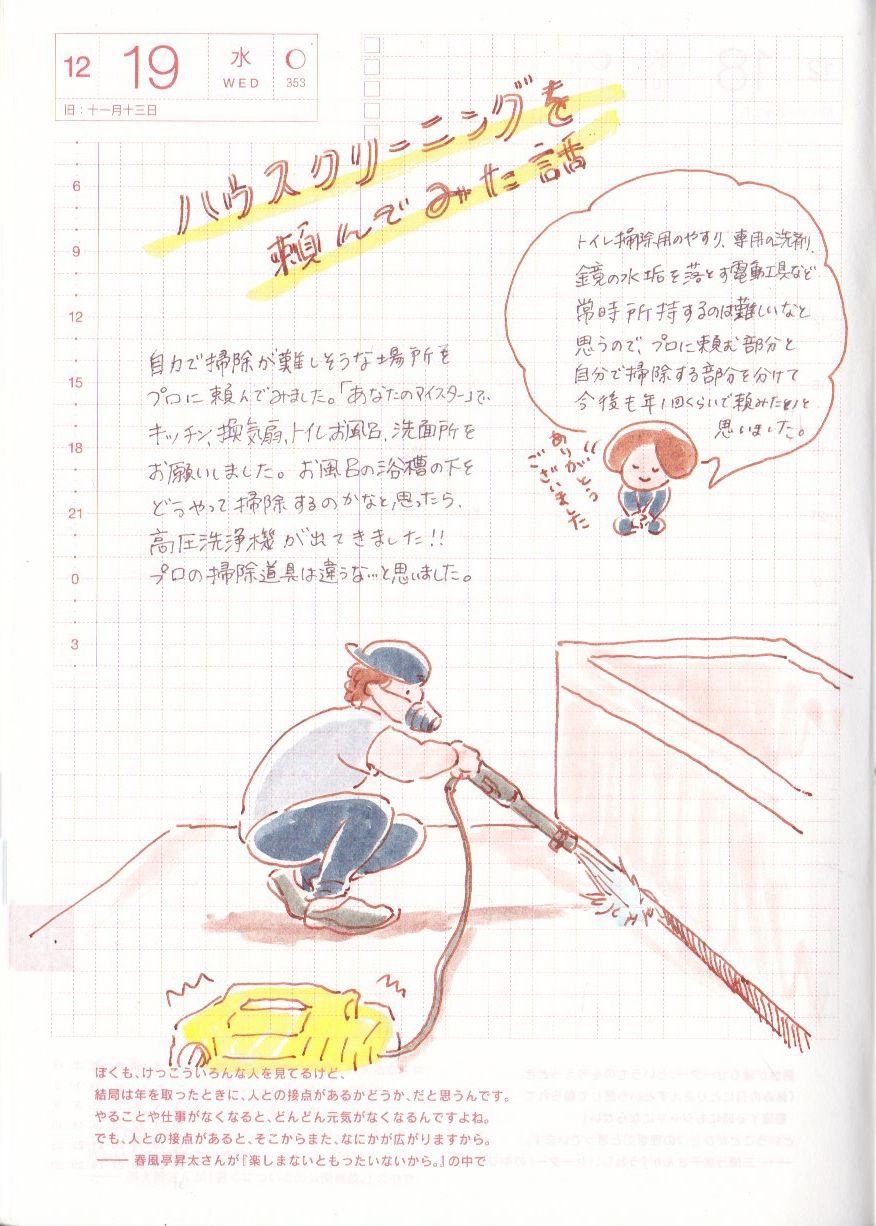 12 19 水 WED 353
旧：十一月十三日
ハウスクリーニングを
頼んでみた話
6
9
12
15
18
21
0
3
トイレ掃除用のやすり、専用の洗剤、
鏡の水垢を落とす電動工具など
常時所持するのは難しいなと
思うので、プロに頼む部分と
自分で掃除する部分を分けて
今後も年1回くらいで頼みたいと
思いました。
ありがとう
ございました
自力で掃除が難しそうな場所を
プロに頼んでみました。「あなたのマイスター」で、
キッチン、換気扇、トイレお風呂、洗面所を
お願いしました。お風呂の浴槽の下を
どうやって掃除するのかなと思ったら、
高圧洗浄機が出てきました!!
プロの掃除道具は違うな…と思いました。
ぼくも、けっこういろんな人を見てるけど、
結局は年を取ったときに、人との接点があるかどうか、だと思うんです。
やることや仕事がなくなると、どんどん元気がなくなるんですよね。
でも、人との接点があると、そこからまた、なにかが広がりますから。
—— 春風亭昇太さんが『楽しまないともったいないから。』の中で